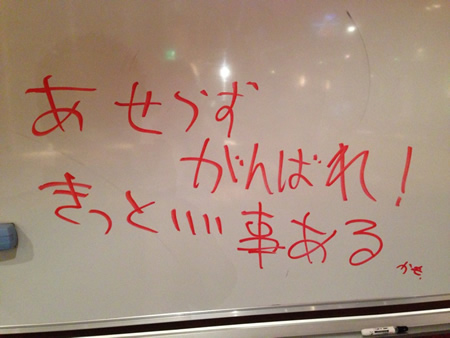 あせらず
がんばれ!
きっといい事ある
かぜ